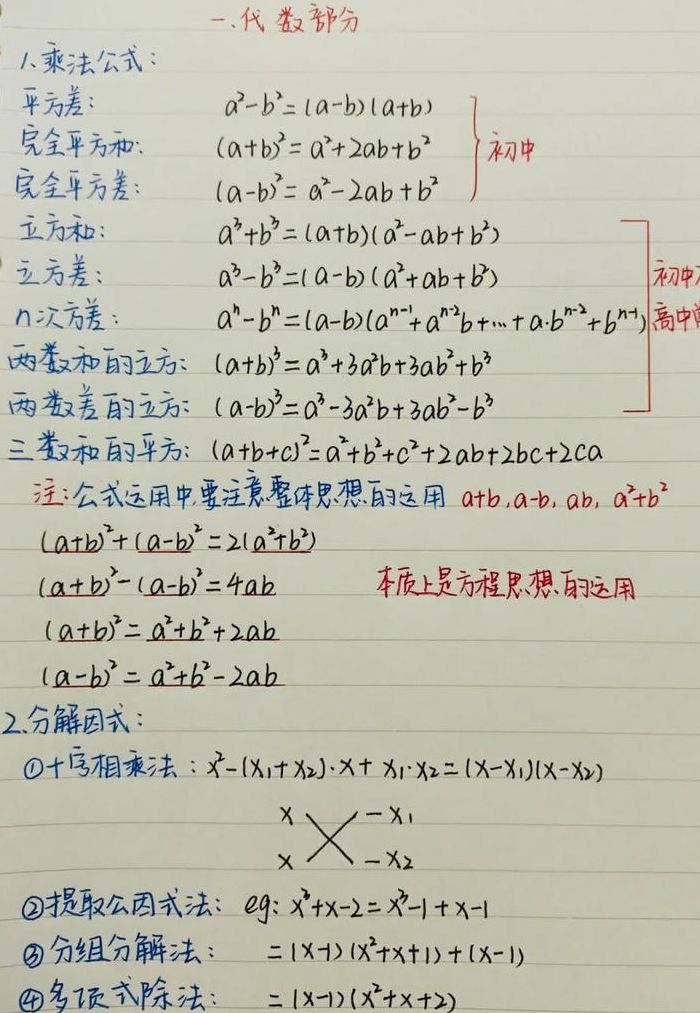 一.代数部分
1.乘法公式:
平方差: a²-b²=(a-b)(a+b)
完全平方和: (a+b)²=a²+2ab+b² 初中
完全平方差: (a-b)²=a²-2ab+b²
立方和: a³+b³=(a+b)(a²-ab+b²)
立方差: a³-b³=(a-b)(a²+ab+b²) 初中
n次方差: aⁿ-bⁿ=(a-b)(aⁿ⁻¹+aⁿ⁻²b+…+a·bⁿ⁻²+bⁿ⁻¹) 高中
两数和的立方: (a+b)³=a³+3a²b+3ab²+b³
两数差的立方: (a-b)³=a³-3a²b+3ab²-b³
三数和的平方: (a+b+c)²=a²+b²+c²+2ab+2bc+2ca
注:公式运用中,要注意整体思想的运用 a+b,a-b,ab,a²+b²
(a+b)²+(a-b)²=2(a²+b²)
(a+b)²-(a-b)²=4ab 本质上是方程思想的运用
(a+b)²=a²+b²+2ab
(a-b)²=a²+b²-2ab
2.分解因式:
①十字相乘法:x²-(x₁+x₂)·x+x₁·x₂=(x-x₁)(x-x₂)
x -x₁
x -x₂
②提取公因式法: eg: x³+x-2=x³-1+x-1
③分组分解法: =(x-1)(x²+x+1)+(x-1)
④多项式除法: =(x-1)(x²+x+2)